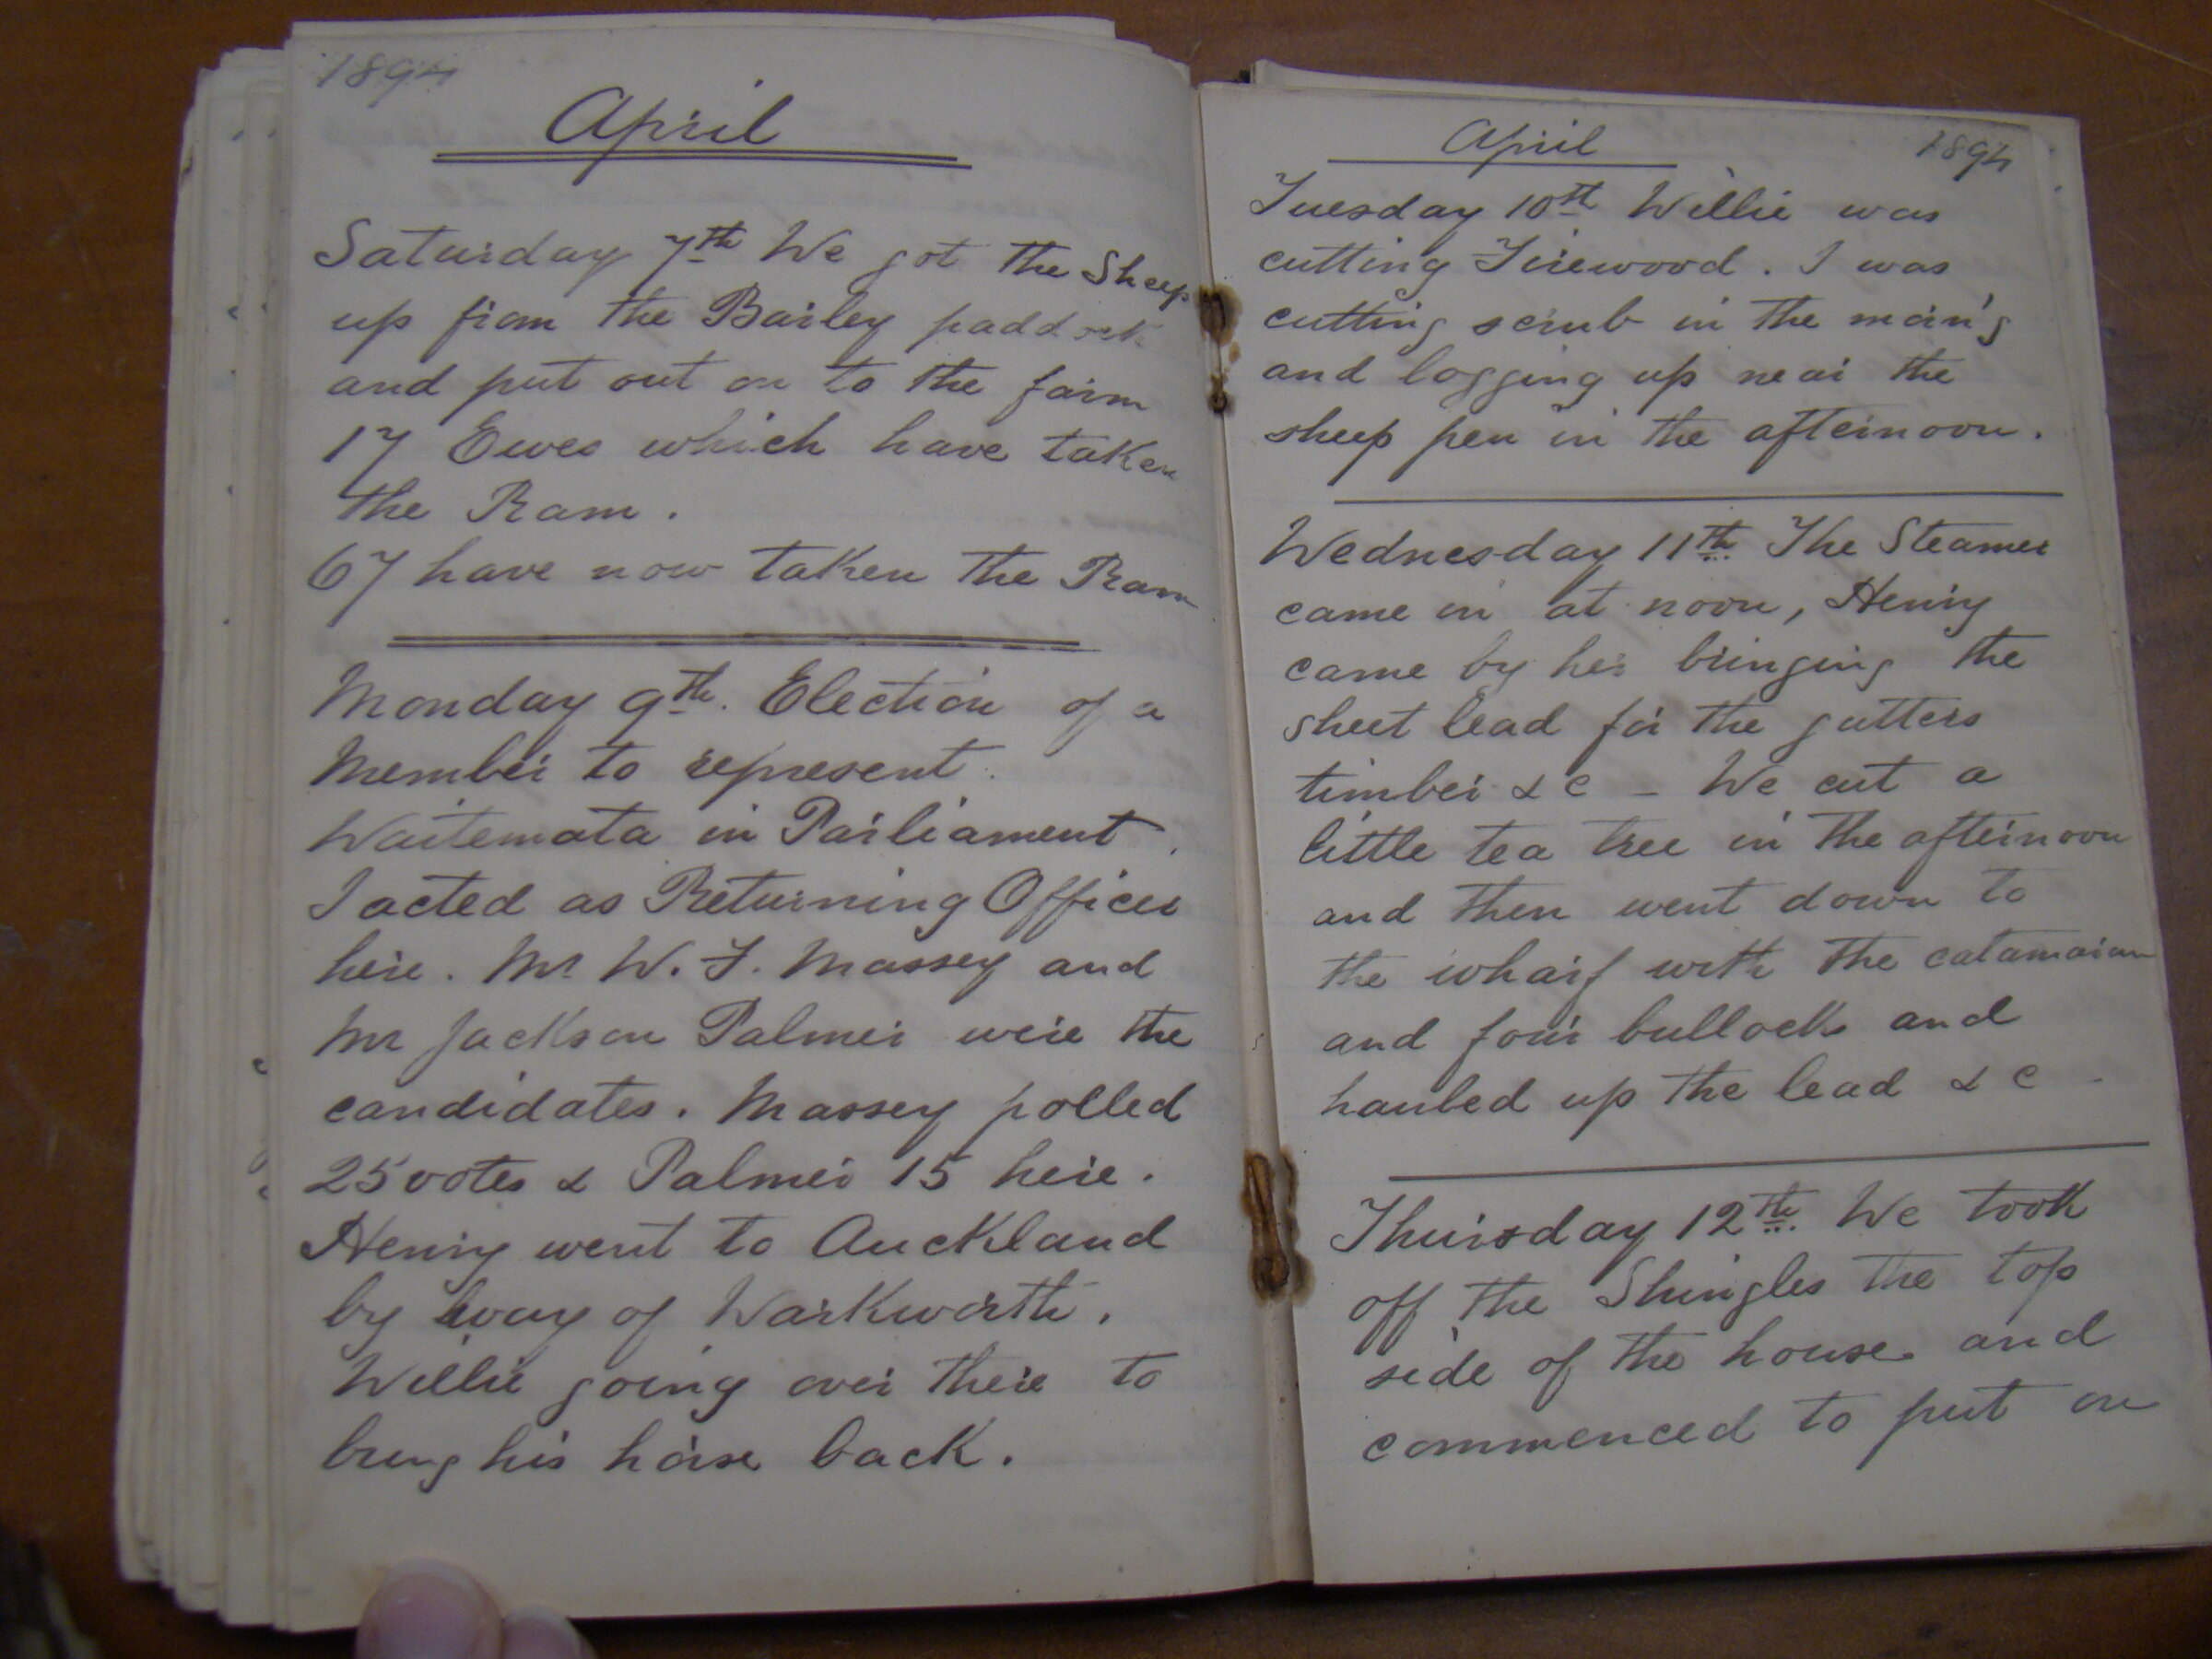 1894
April
Saturday 7th We got the Sheep
up from the Bailey paddock
and put out on to the farm
17 Ewes which have taken
the Ram.
67 have now taken the Ram
Monday 9th. Election of a
Member to represent
Waitemata in Parliament.
I acted as Returning Officer
here. Mr W. F. Massey and
Mr Jackson Palmer were the
candidates. Massey polled
25 votes & Palmer 15 here.
Henry went to Auckland
by way of Warkworth.
Willie going over there to
bring his horse back.
April 1894
Tuesday 10th Willie was
cutting Firewood. I was
cutting scrub in the morn'g
and logging up near the
sheep pen in the afternoon.
Wednesday 11th The Steamer
came in at noon, Henry
came by her bringing the
sheet lead for the gutters
timber & c - We cut a
little tea tree in the afternoon
and then went down to
the wharf with the catamaran
and four bullocks and
hauled up the lead & c -
Thursday 12th. We took
off the Shingles the top
side of the house and
commenced to put on